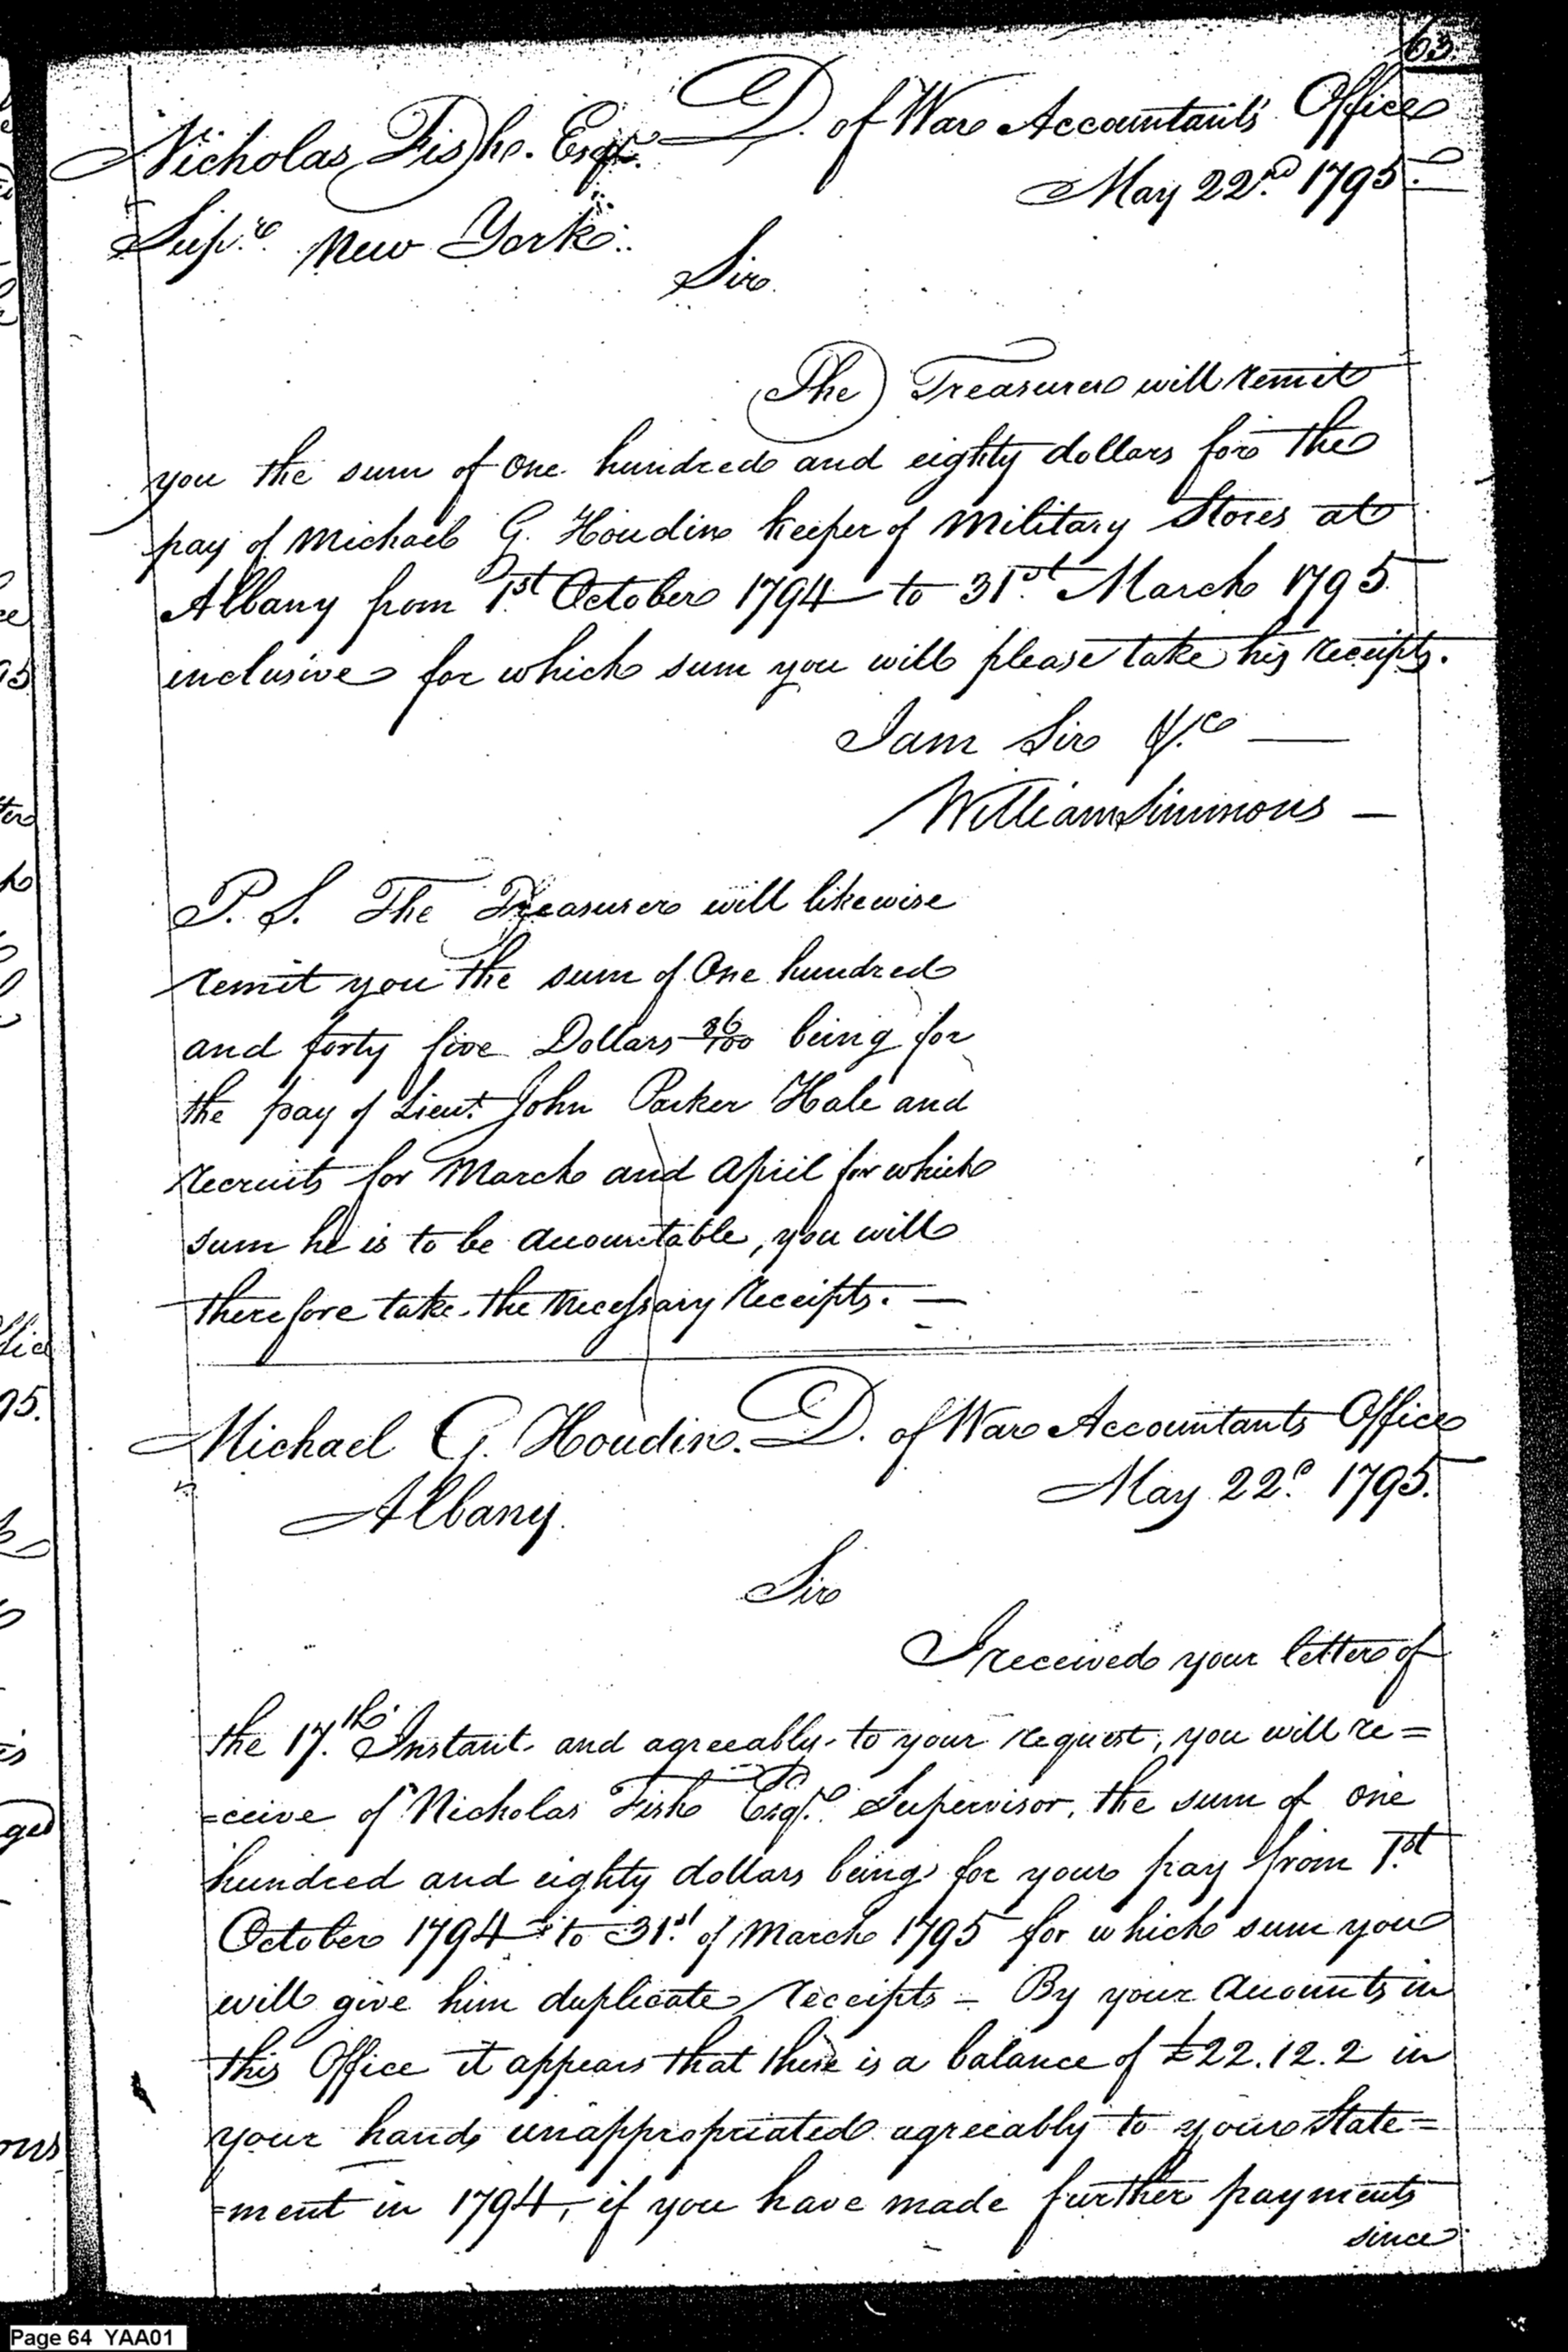 63.
Nicholas Fish. Esqr. D. of War Accountants Office
May 22nd 1795.
Supr. New York.
Sir
The Treasurer will remit
you the sum of One hundred and eighty dollars for the
pay of Michael G. Houdin keeper of Military Stores at
Albany from 1st October 1794 to 31st March 1795
inclusive for which sum you will please take his receipts.
I am Sir &c —
William Simmons —
P. S. The Treasurer will likewise
remit you the sum of One hundred
and forty five Dollars 86/100 being for
the pay of Lieut. John Parker Hale and
recruits for March and April for which
sum he is to be accountable, you will
therefore take the necessary receipts. —
Michael G. Houdin. D. of War Accountants Office
May 22d 1795.
Albany.
Sir
I received your letter of
the 17th Instant and agreeably to your request, you will re=
=ceive of Nicholas Fish Esqr. Supervisor, the sum of one
hundred and eighty dollars being for your pay from 1st
October 1794 to 31st of March 1795 for which sum you
will give him duplicate receipts – By your accounts in
this Office it appears that there is a balance of £22.12.2 in
your hands unappropriated agreeably to your State=
=ment in 1794, if you have made further payments
since
Page 64 YAA01